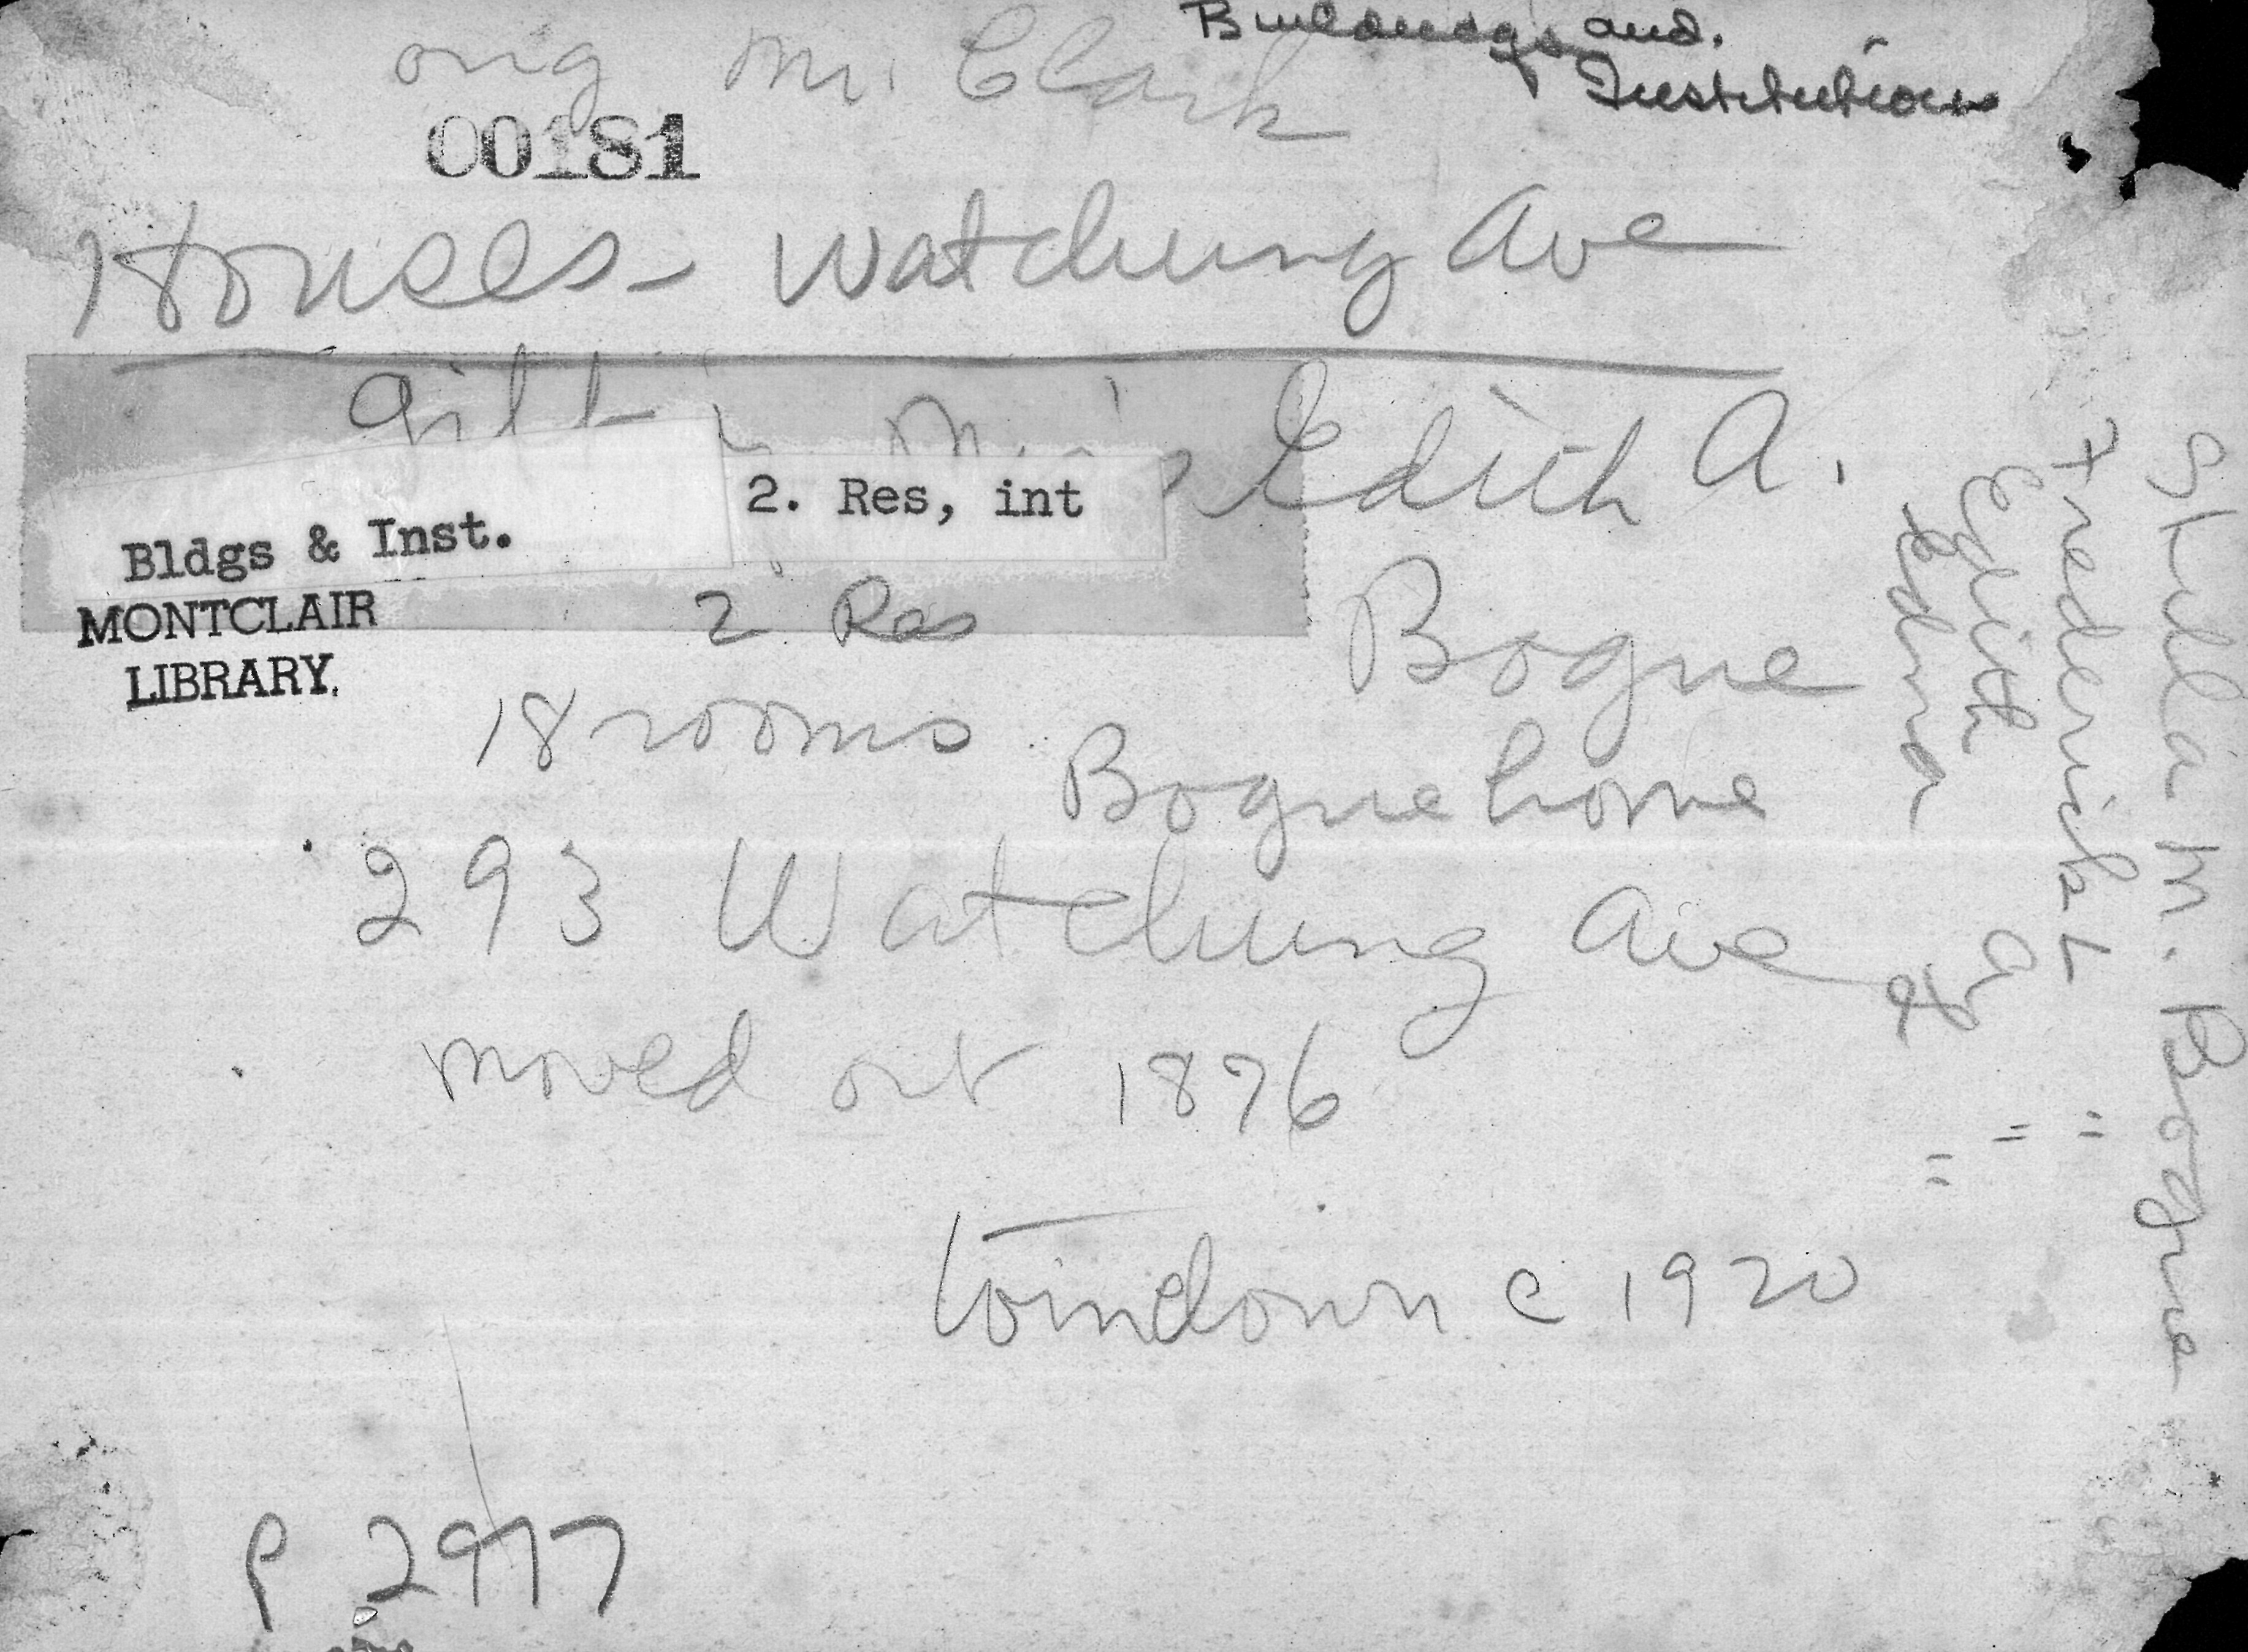 Buildings and
Institutions
orig Mr. Clark
00181
Houses - Watchung Ave
Gift Miss Edith A.
Bogue
2. Res, int
Bldgs & Inst.
2 Res
MONTCLAIR
LIBRARY.
18 rooms
Bogue home
293 Watchung Ave
moved out 1876
torn down c 1920
P 2977
M. Bogue
Frederick L = 
Edith A =
Edna =